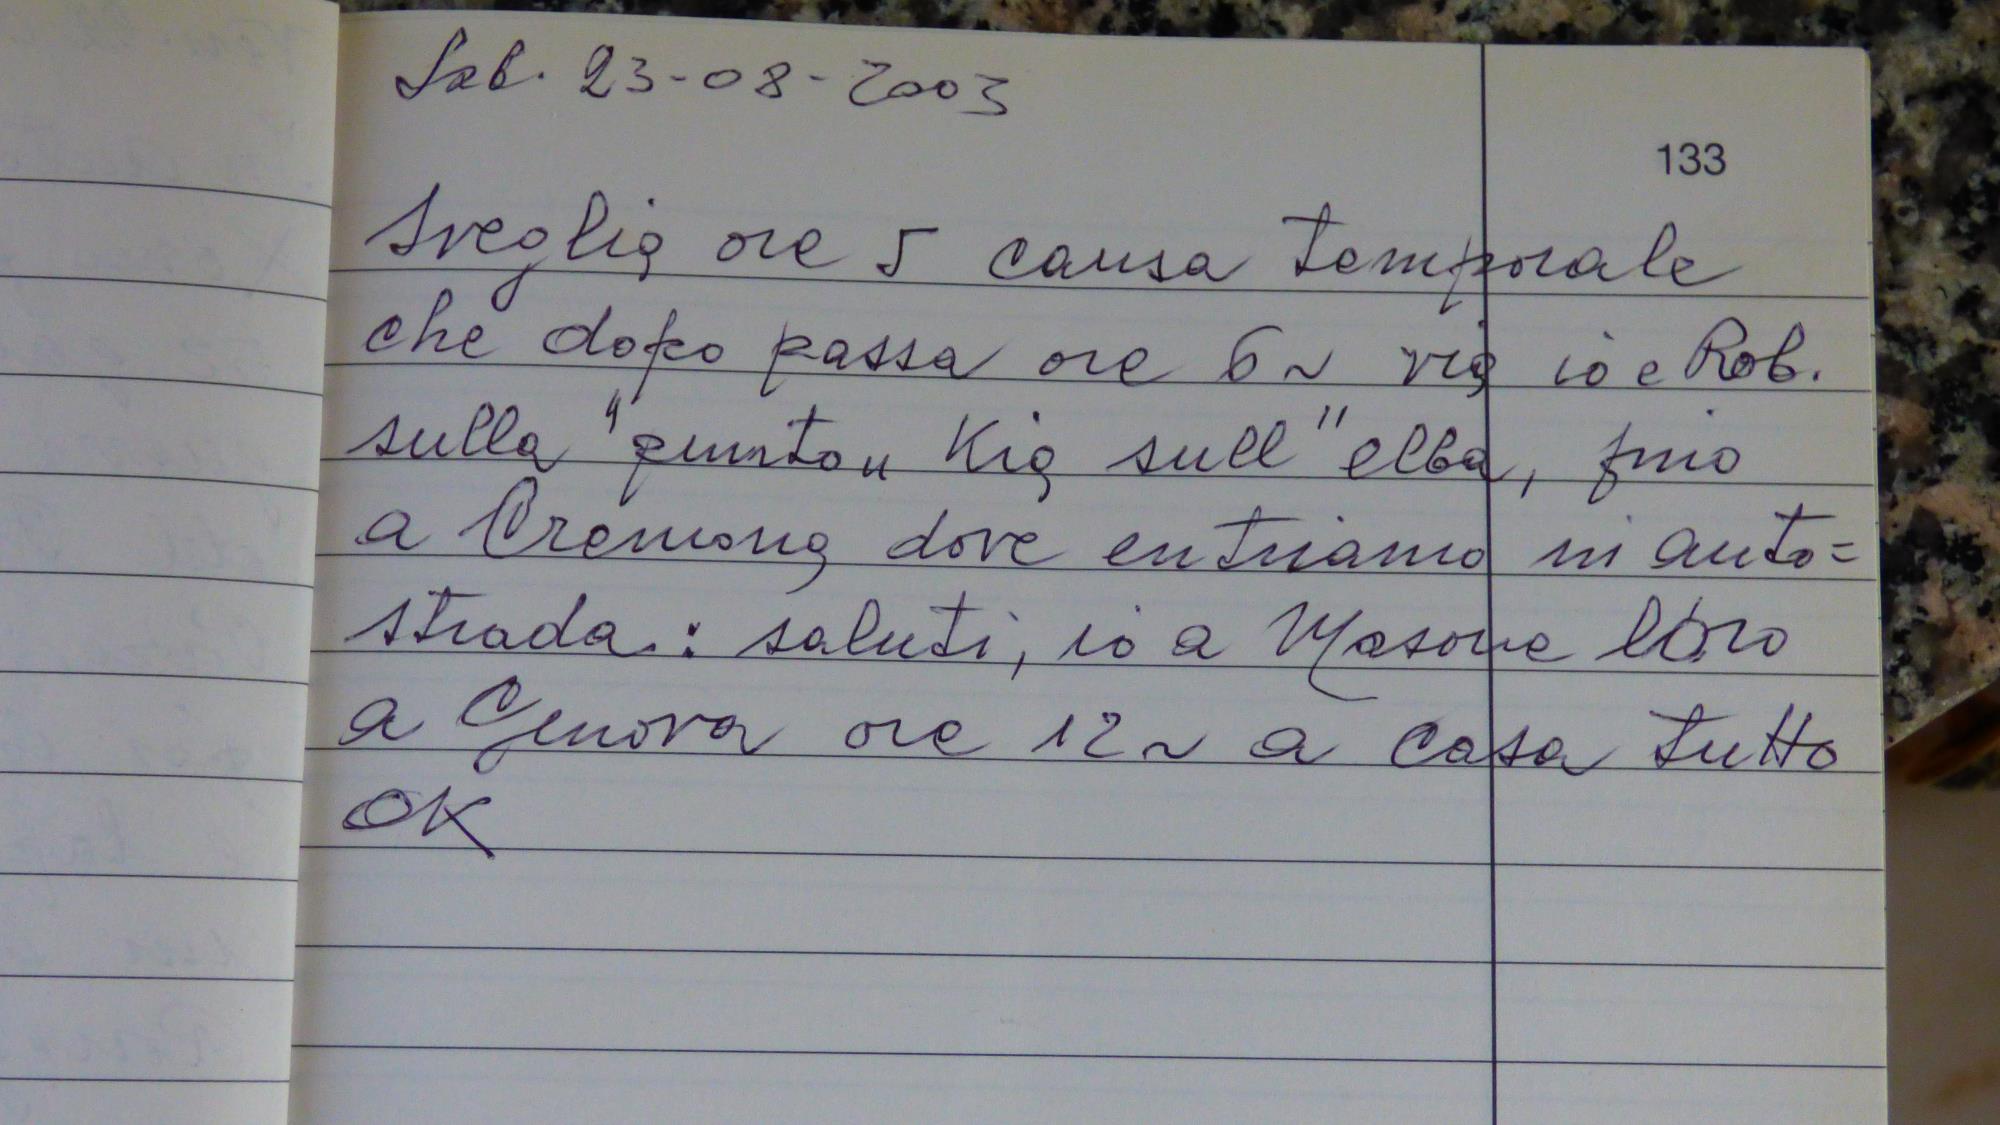 Sab. 23-08-2003
133
Sveglia ore 5 causa temporale
che dopo passa ore 6 ~ via io e Rob.
sulla "punto" Kia sull "elba, fino
a Cremona dove entriamo in auto=
strada.: saluti, io a Masone loro
a Genova ore 12 ~ a casa tutto
OK